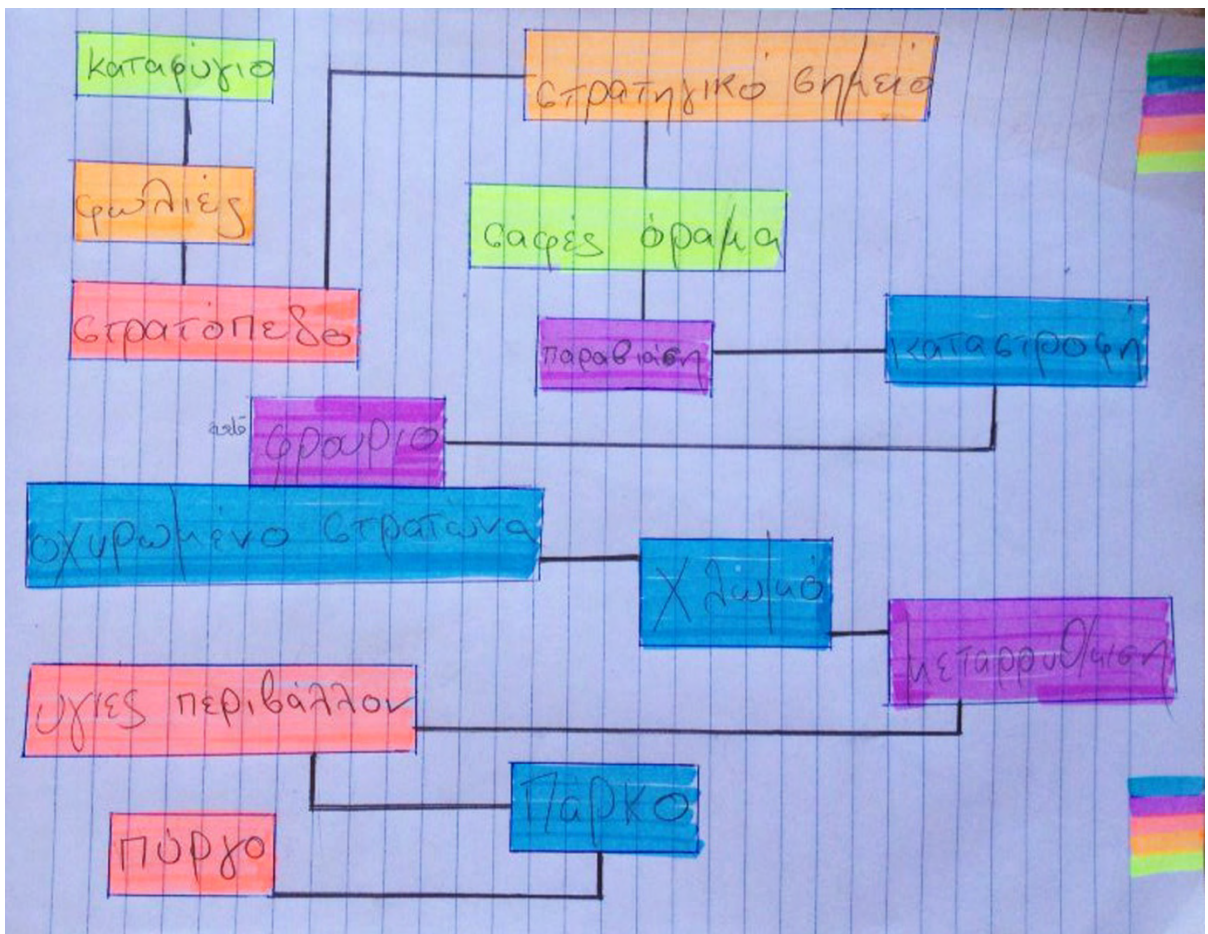 καταφύγιο
στρατηγικό σημείο
φωλιές
σαφές όραμα
στρατόπεδο
παραβιάση
καταστροφή
φρουριο
οχυρωμένο στρατώνα
χλωμό
μεταρρυθμιση
υγιές περιβάλλον
Πάρκο
πύργο